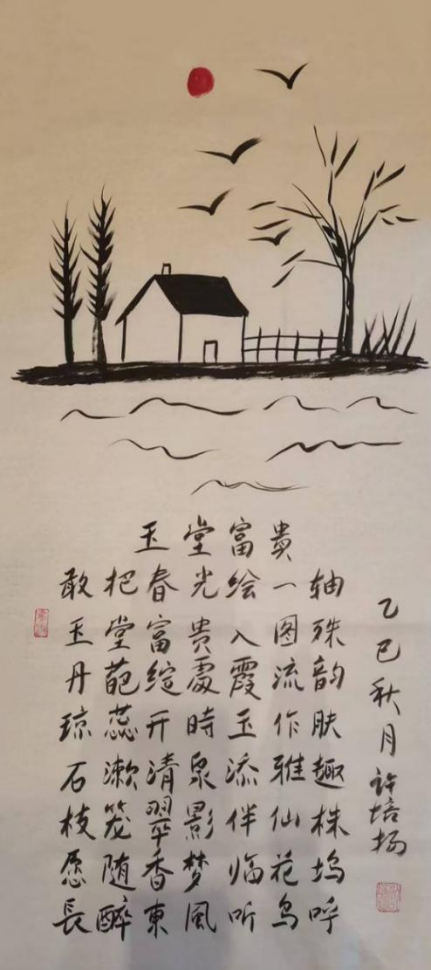 玉堂富貴
敢把春光绘一轴
玉堂富貴入图殊
丹葩綻處霞流韵
琼蕊开時玉作肤
石漱清泉添雅趣
枝笼翠影伴仙株
愿随香梦临花坞
長醉東風听鸟呼
乙巳秋月许培扬